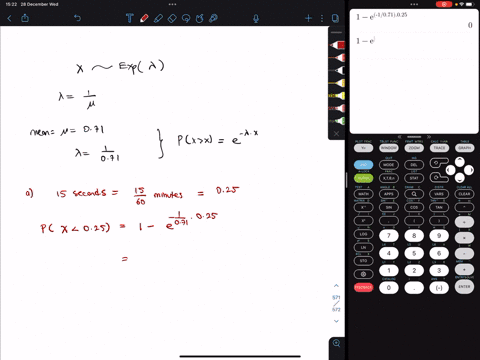 15:22 28 December Wed
X ~ Exp(λ)
λ = 1/μ
mean = μ = 0.71
λ = 1/0.71
P(X>x) = e^(-λ.x)
a) 15 seconds = 15/60 minutes = 0.25
P( X < 0.25) = 1 - e^(1/0.71 . 0.25)
=
571
572
1-e^((-1/0.71).0.25)
0
1-e^(
WINDOW
ZOOM
TRACE
GRAPH
MODE
DEL
X,T,θ,n
STAT
MATH
APPS
PRGM
VARS
CLEAR
SIN
COS
TAN
^
,
(
)
÷
LOG
7
8
9
×
LN
4
5
6
-
STO
1
2
3
+
Feedback
0
.
(-)
ENTER